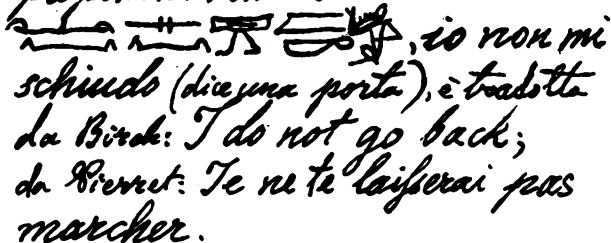 io non mi
schiudo (dice una porta), è tradotta
da Birch: I do not go back;
da Pierret: Je ne te laisserai pas
marcher.